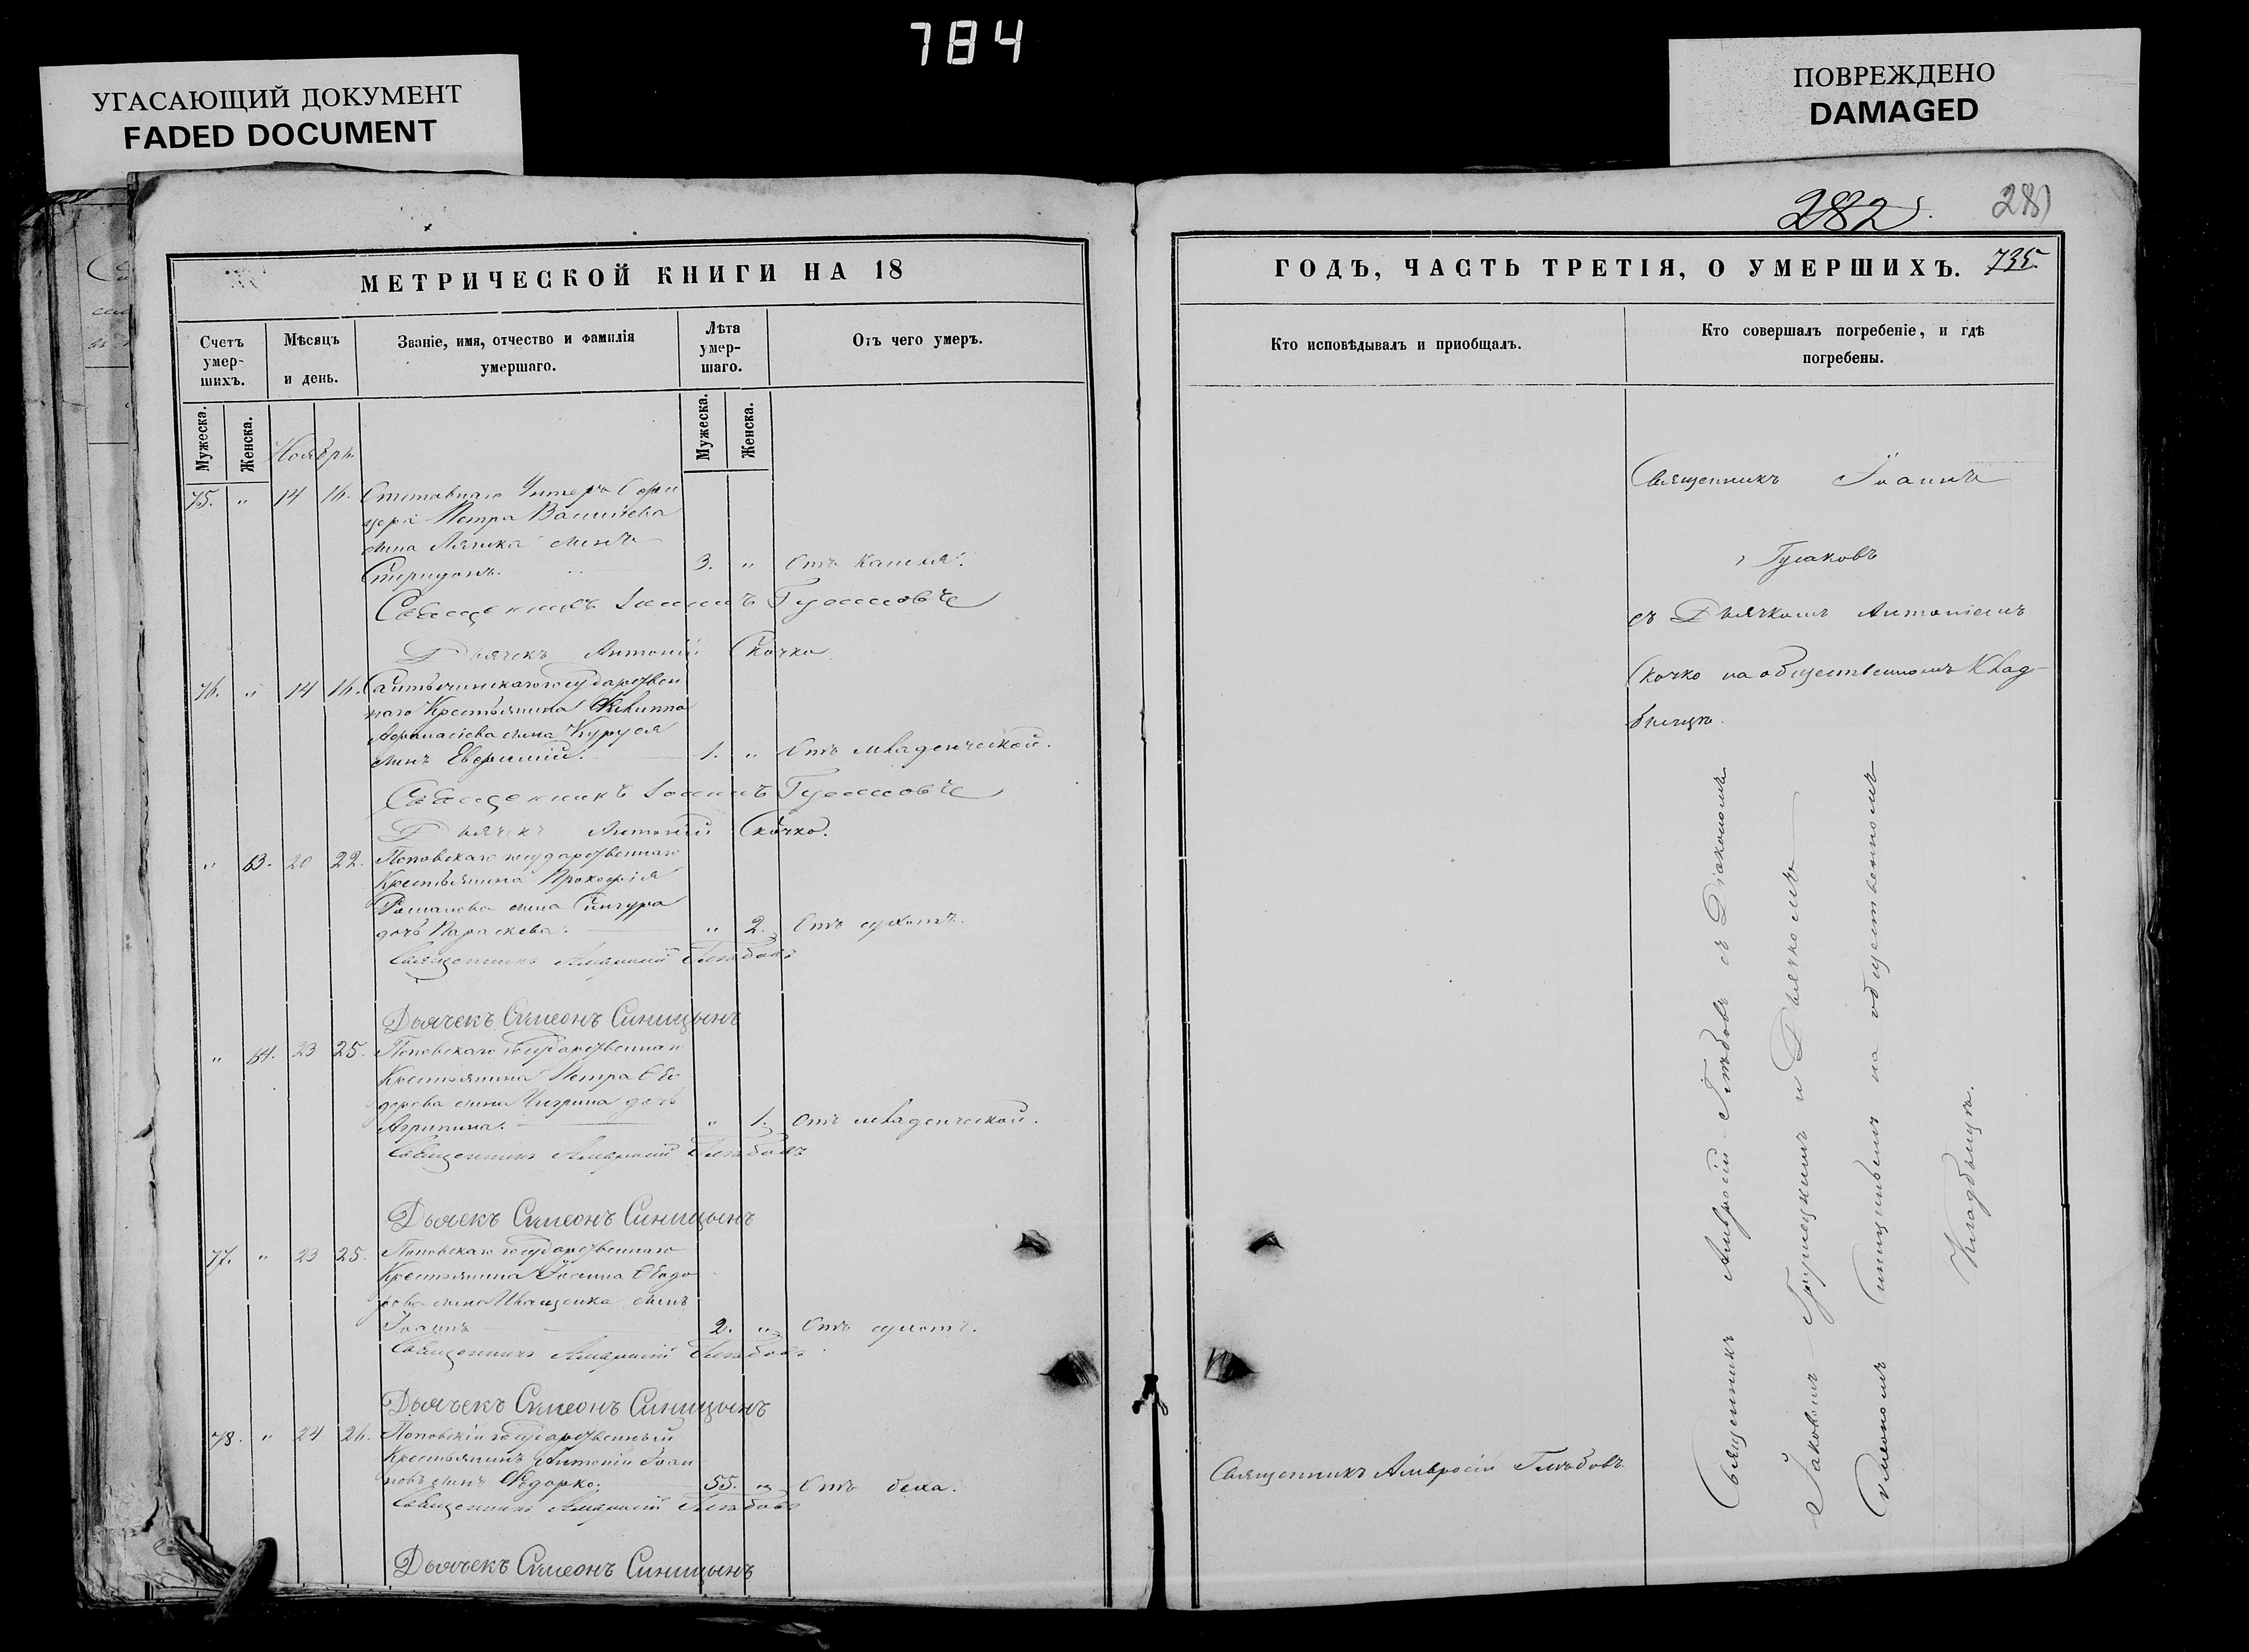 784
УГАСАЮЩИЙ ДОКУМЕНТ
FADED DOCUMENT
ПОВРЕЖДЕНО
DAMAGED
282
281
735.
МЕТРИЧЕСКОЙ КНИГИ НА 18
Счетъ умер-шихъ.
Мѣсяцъ и день.
Званіе, имя, отчество и фамилія умершаго.
Лѣта умер-шаго.
Отъ чего умеръ.
Мужеска.
Женска.
Мужеска.
Женска.
Ноябрь
75. " 14 16. Отставнаго Унтеръ Офи
цера Петра Васильева
сына сынъ
Спиридонъ. 3. " Отъ кашля.
Священникъ Іоаннъ
Дьячекъ Антоній Скочко
76. " 14 16. государствен
наго Крестьянина Филиппа
Афанасіева сына
сынъ Евфимій. 1. " Отъ младенческой.
Священникъ Іоаннъ
Дьячекъ Антоній Скочко.
" 63. 20 22. Поповскаго государственнаго
Крестьянина Прокофія
Романова сына
дочь Параскева. " 2. Отъ сухотъ.
Священникъ Амвросій Глѣбовъ
Дьячекъ Симеонъ Синицынъ
" 64. 23 25. Поповскаго государственнаго
Крестьянина Петра Ѳео
дорова сына дочь
Агрипина. " 1. Отъ младенческой.
Священникъ Амвросій Глѣбовъ
Дьячекъ Симеонъ Синицынъ
77. " 23 25. Поповскаго государственнаго
Крестьянина Іоанна Ѳеодо
рова сына Иващенка сынъ
Іоаннъ 2. " Отъ сухотъ.
Священникъ Амвросій Глѣбовъ
Дьячекъ Симеонъ Синицынъ
78. " 24 26. Поповскій государственный
Крестьянинъ Антоній Іоан
новъ сынъ Ѳедорко. 55. " Отъ
Священникъ Амвросій Глѣбовъ
Дьячекъ Симеонъ Синицынъ
ГОДЪ, ЧАСТЬ ТРЕТІЯ, О УМЕРШИХЪ.
Кто исповѣдывалъ и пріобщалъ.
Кто совершалъ погребеніе, и гдѣ
погребены.
Священникъ Іоаннъ
съ Дьячкомъ Антоніемъ
Скочко на общественномъ Клад-
бищѣ.
Священникъ Амвросій Глѣбовъ
Священникъ Амвросій Глѣбовъ съ Діакономъ
Іаковомъ и Дьячкомъ
Симеономъ Синицынымъ на общественномъ
Кладбищѣ.